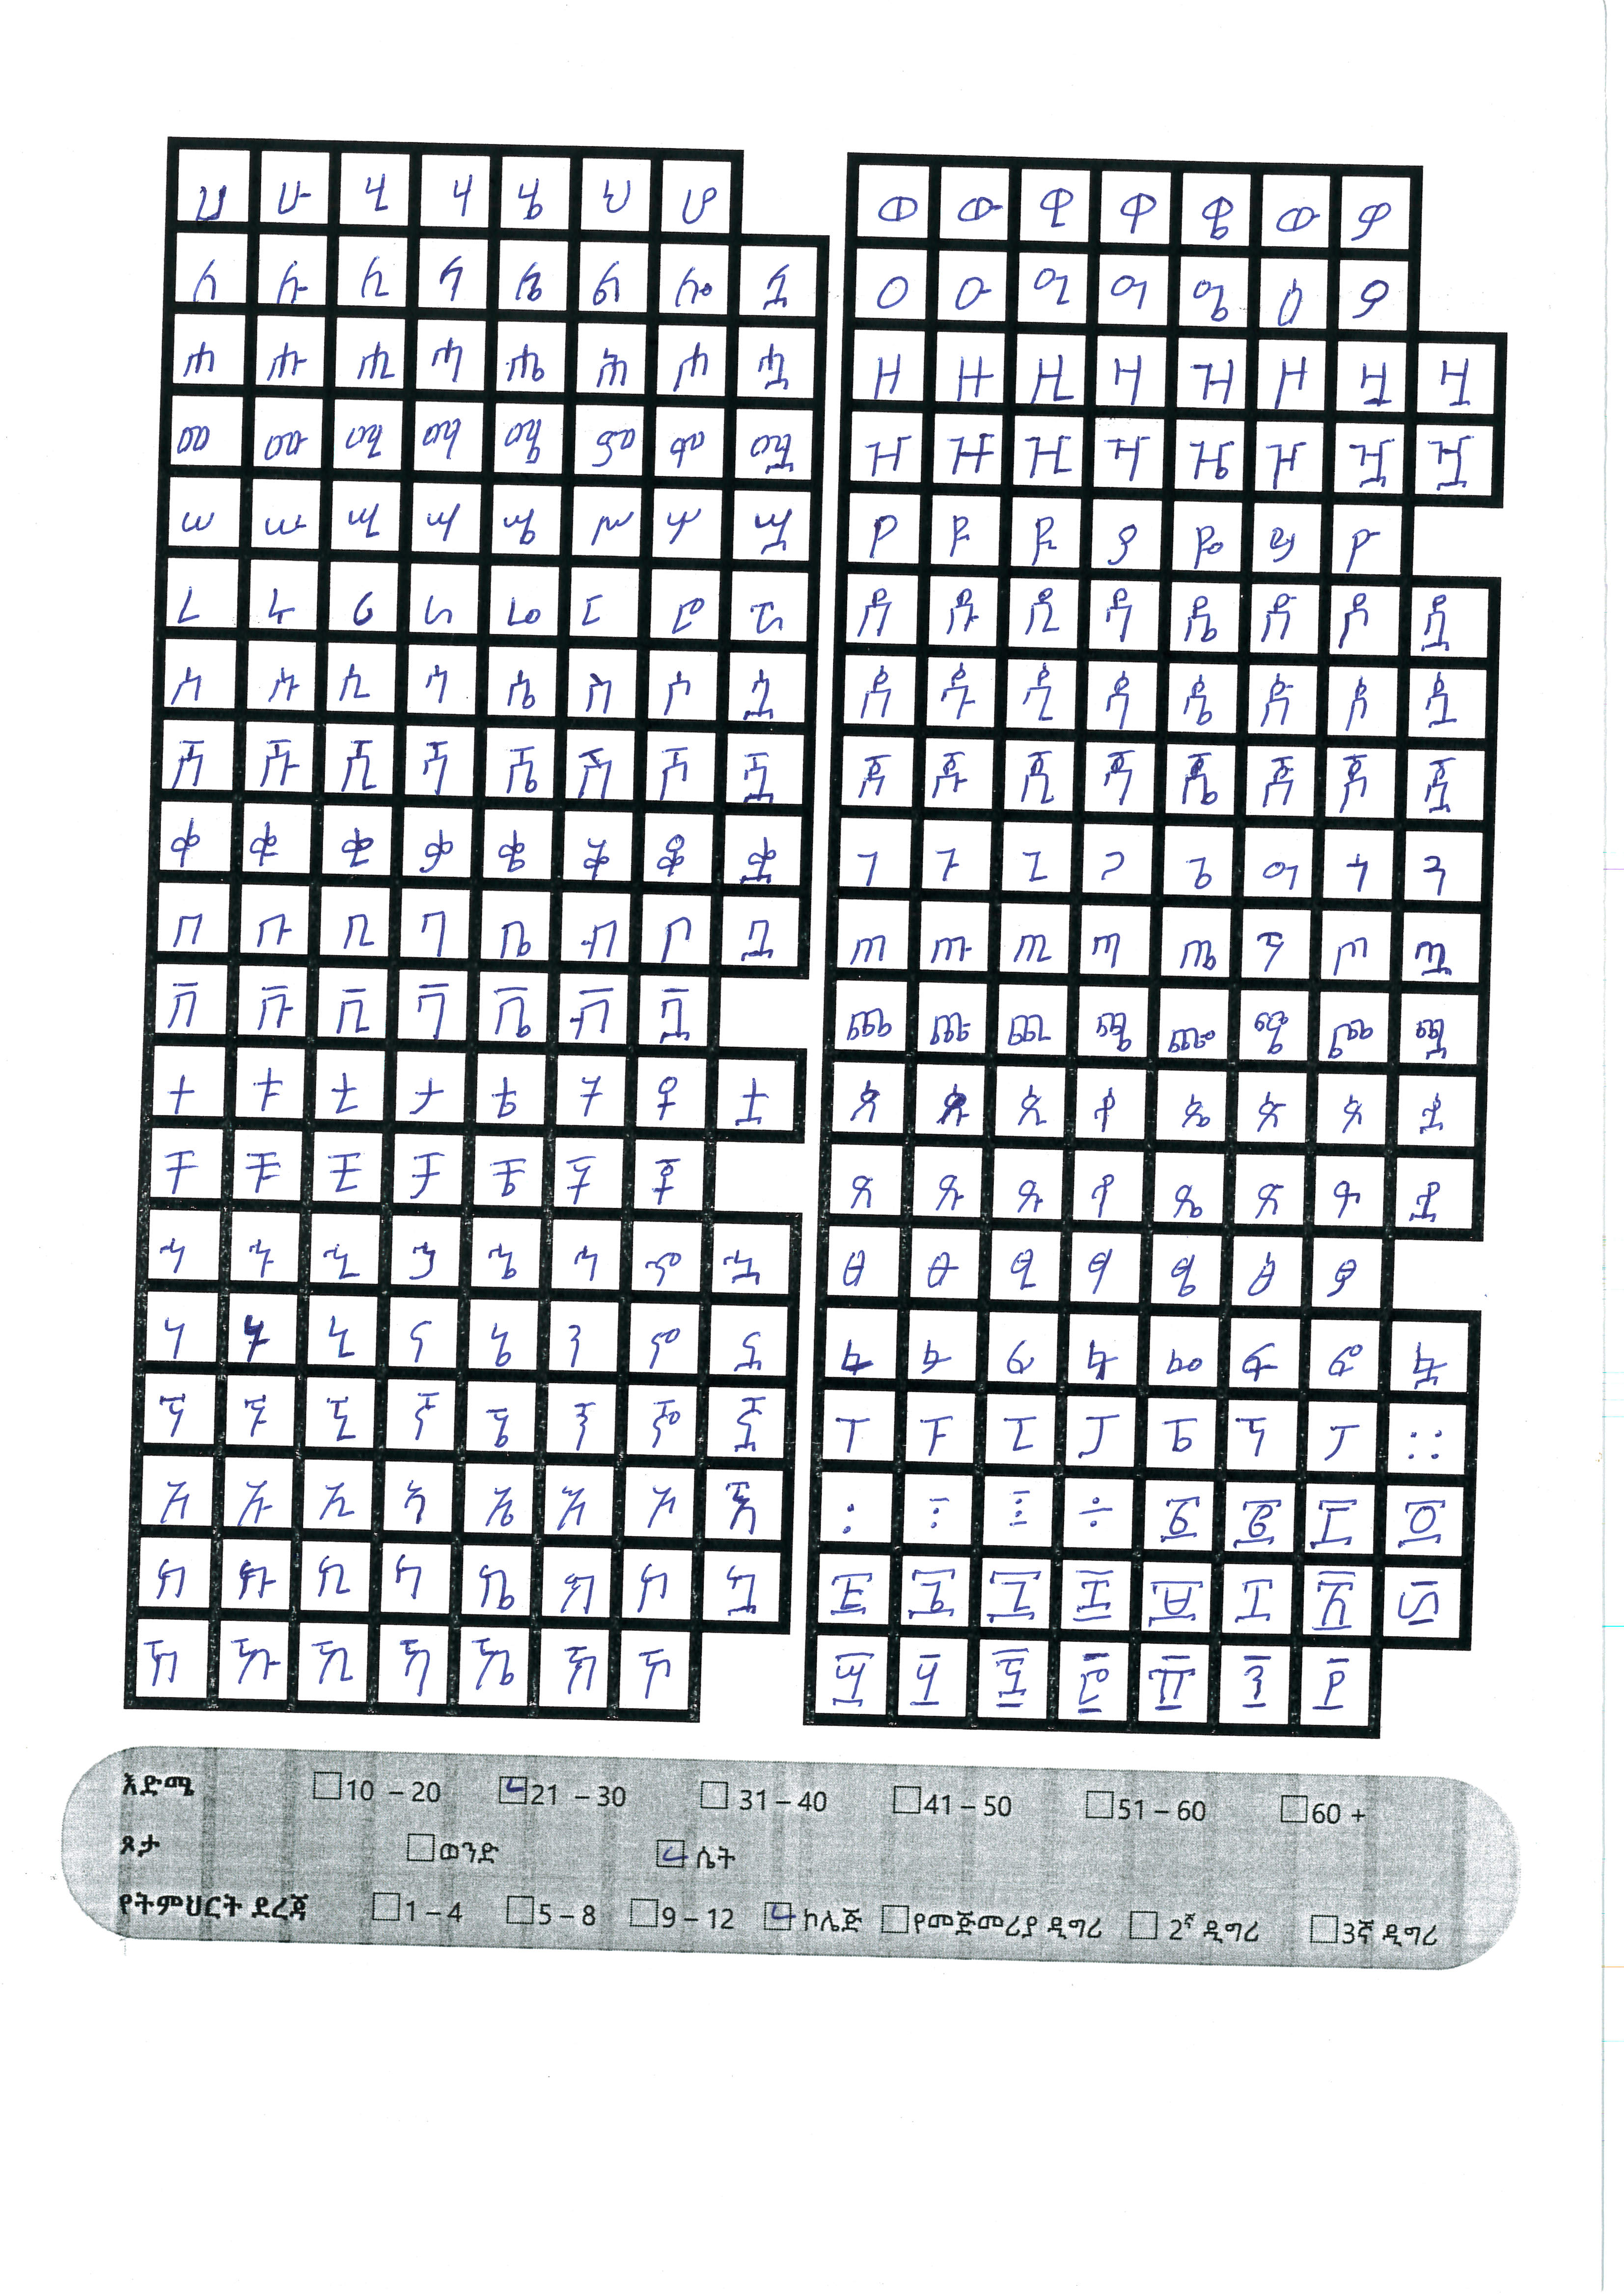 ሀ ሁ ሂ ሃ ሄ ህ ሆ
ለ ሉ ሊ ላ ሌ ል ሎ ሏ
ሐ ሑ ሒ ሓ ሔ ሕ ሖ ሗ
መ ሙ ሚ ማ ሜ ም ሞ ሟ
ሠ ሡ ሢ ሣ ሤ ሥ ሦ ሧ
ረ ሩ ሪ ራ ሬ ር ሮ ሯ
ሰ ሱ ሲ ሳ ሴ ስ ሶ ሷ
ሸ ሹ ሺ ሻ ሼ ሽ ሾ ሿ
ቀ ቁ ቂ ቃ ቄ ቅ ቆ ቋ
በ ቡ ቢ ባ ቤ ብ ቦ ቧ
ቨ ቩ ቪ ቫ ቬ ቭ ቯ
ተ ቱ ቲ ታ ቴ ት ቶ ቷ
ቸ ቹ ቺ ቻ ቼ ች ቾ
ኀ ኁ ኂ ኃ ኄ ኅ ኆ ኋ
ነ ኑ ኒ ና ኔ ን ኖ ኗ
ኘ ኙ ኚ ኛ ኜ ኝ ኞ ኟ
አ ኡ ኢ ኣ ኤ እ ኦ ኧ
ከ ኩ ኪ ካ ኬ ክ ኮ ኳ
ኸ ኹ ኺ ኻ ኼ ኽ ኾ
ወ ዉ ዊ ዋ ዌ ው ዎ
ዐ ዑ ዒ ዓ ዔ ዕ ዖ
ዘ ዙ ዚ ዛ ዜ ዞ ዟ ዟ
ዠ ዡ ዢ ዣ ዤ ዦ ዧ ዧ
የ ዩ ዪ ያ ዬ ይ ዮ
ደ ዱ ዲ ዳ ዴ ድ ዶ ዷ
ዸ ዹ ዺ ዻ ዼ ዽ ዾ ዿ
ጀ ጁ ጂ ጃ ጄ ጅ ጆ ጇ
ገ ጉ ጊ ጋ ጌ ግ ጎ ጓ
ጠ ጡ ጢ ጣ ጤ ጥ ጦ ጧ
ጨ ጩ ጪ ጫ ጬ ጭ ጮ ጯ
ጰ ጱ ጲ ጳ ጴ ጵ ጶ ጷ
ጸ ጹ ጺ ጻ ጼ ጽ ጾ ጿ
ፀ ፁ ፂ ፃ ፄ ፅ ፆ
ፈ ፉ ፊ ፋ ፌ ፍ ፎ ፏ
ፐ ፑ ፒ ፓ ፔ ፕ ፖ ።
፡ ፥ ፤ ÷ ፩ ፪ ፫ ፬
፭ ፮ ፯ ፰ ፱ ፲ ፳ ፴
፵ ፶ ፷ ፸ ፹ ፺ ፻
እድሜ 10 – 20 21 – 30 31 – 40 41 – 50 51 – 60 60 +
ጾታ ወንድ ሴት
የትምህርት ደረጃ 1 – 4 5 – 8 9 – 12 ኮሌጅ የመጅመሪያ ዲግሪ 2ኛ ዲግሪ 3ኛ ዲግሪ